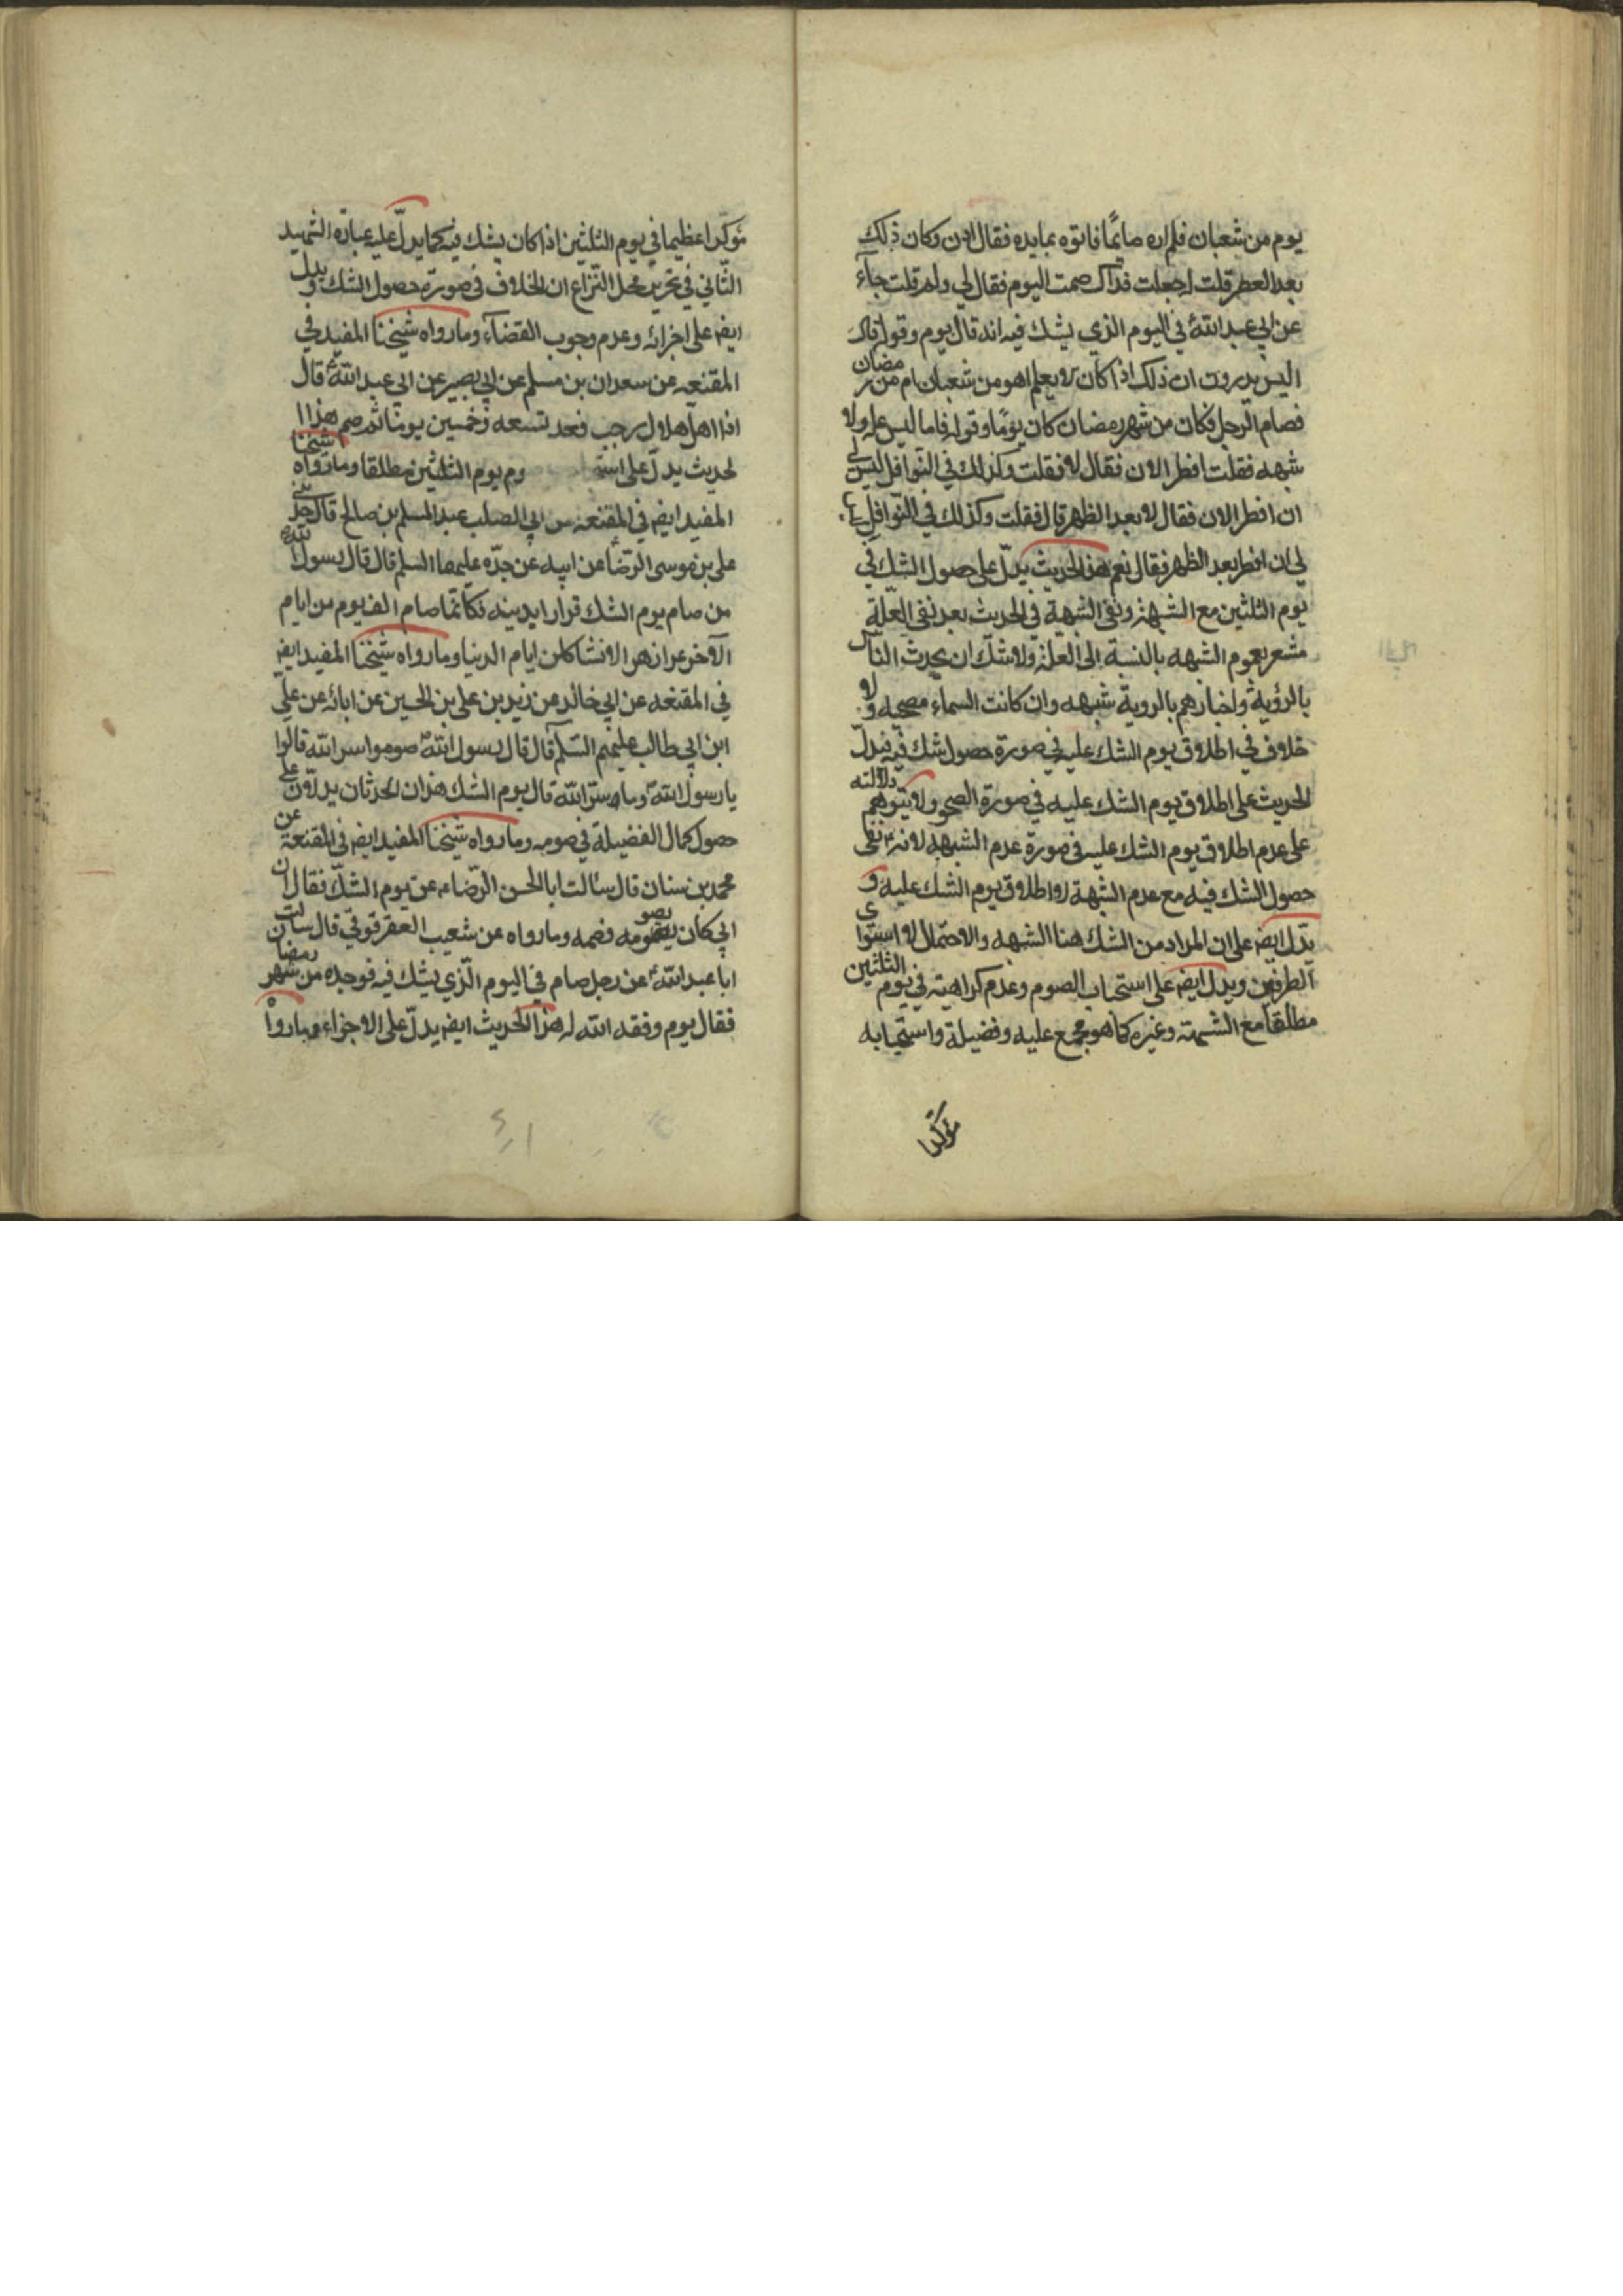 يوم من شعبان فلم اره صائمًا فاتوه بمايده فقال ادن وكان ذلك
بعد العصر قلت له جعلت فداك صمت اليوم فقال لي ولم قلت جاء
عن ابي عبد الله ع في اليوم الذي يشك فيه انه قال يوم وفق له قال
اليس تدرون ان ذلك اذا كان لا يعلم اهو من شعبان ام من رمضان
فصام الرجل فكان من شهر رمضان كان يومًا وفق له فاما ليس عله ولا
شبهه فقلت افطر الان فقال لا فقلت وكذلك في النوافل ليس لي
ان افطر الان فقال لا بعد الظهر قال فقلت وكذلك في النوافل
لي ان افطر بعد الظهر فقال نعم هذا الحديث يدلّ على حصول الشك في
يوم الثلثين مع الشبهة ونفى الشبهة في الحديث بعد نفى العلّة
مشعر بعموم الشبهه بالنسبة الى العلّة ولا شكّ ان تحدث الناس
بالرؤية واخبارهم بالروية شبهه وان كانت السماء مصحيه ولا
خلاف في اطلاق يوم الشك عليه في صورة حصول شك فيه فيدلّ
الحديث على اطلاق يوم الشك عليه في صورة الصحو ولا يتوهم دلالته
على عدم اطلاق يوم الشك عليه في صورة عدم الشبهه لانه نفى
حصول الشك فيه مع عدم الشبهة لا اطلاق يوم الشك عليه و
يدّل ايضا على ان المراد من الشك هنا الشبهه والاحتمال لا استوى
الطرفين ويدل ايضا على استحباب الصوم وعدم كراهيته في يوم الثلثين
مطلقا مع الشبهة وغيره كما هو مجمع عليه وفضيلة واستحبابه
مؤكدا
مؤكّدا عظيما في يوم الثلثين اذا كان يشك فيه كما يدلّ عليه عبارة الشهيد
الثاني في تحرير محل النّزاع ان الخلاف في صورة حصول الشك ويدل
ايضا على اجزائه وعدم وجوب القضاء وما رواه شيخنا المفيد في
المقنعه عن سعدان بن مسلم عن ابي بصير عن ابي عبد الله ع قال
اذا اهلّ هلال رجب فعد تسعه وخمسين يومًا ثم صم هذا ا
لحديث يدلّ على است وم يوم الثلثين مطلقا وما رواه شيخنا
المفيد ايضا في المقنعه عن ابي الصلب عبد السلم بن صالح قال حدثنى
على بن موسى الرّضا عن ابيه عن جدّه عليهما السلم قال قال رسول الله
من صام يوم الشك فرارا بدينه فكانّما صام الف يوم من ايام
الاخر غرا زهر الا تشاكلن ايام الدنيا وما رواه شيخنا المفيد ايضا
في المقنعه عن ابي خالد عن زيد بن على بن الحسين عن ابائه عن علي
ابن ابي طالب عليهم السّلم قال قال رسول الله صوموا سر الله قالوا
يا رسول الله وما سرّ الله قال يوم الشك هذان الحدثان يدلّان على
حصول كمال الفضيلة في صومه وما رواه شيخنا المفيد ايضا في المقنعة عن
محمد بن سنان قال سالت ابا الحسن الرّضا ع عن يوم الشكّ فقال ان
ابي كان يصومه فصمه وما رواه عن شعيب العقرقوفيّ قال سالت
ابا عبد الله ع عن رجل صام في اليوم الّذي يشك فيه فوجده من شهر رمضان
فقال يوم وفقه الله له هذا الحديث ايضا يدلّ على الاجزاء وما رواه